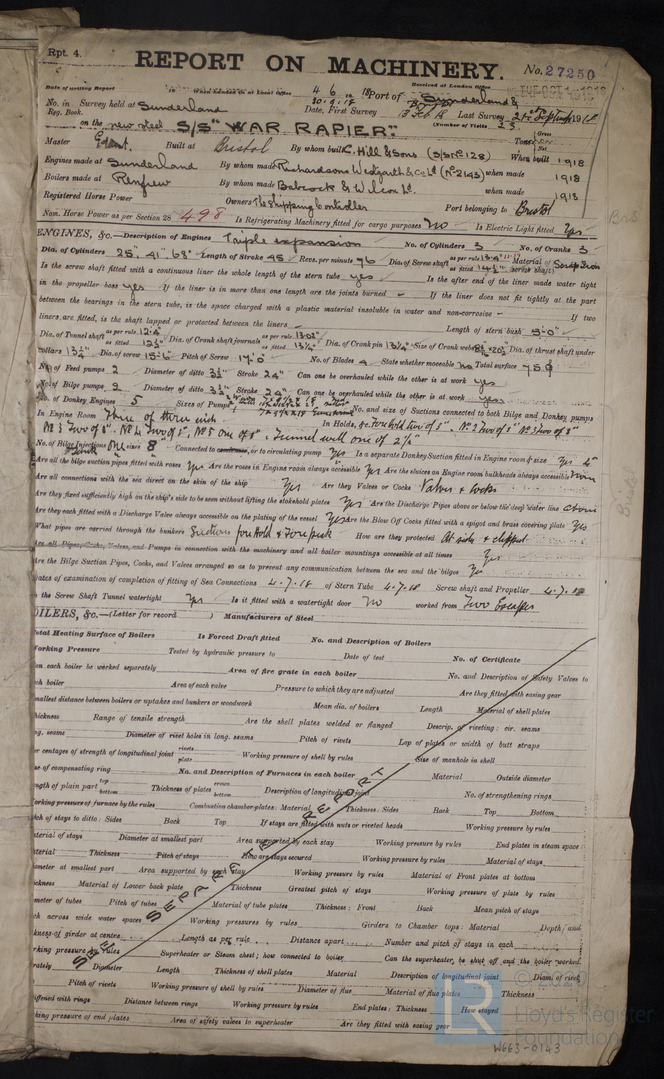 Rpt. 4.
REPORT ON MACHINERY.
No. 27250
TUE. OCT. 1 1918
Date of writing Report
When handed in at Local Office 4 6 18 Port of Sunderland &
Received at London Office
No. in Survey held at Sunderland Date, First Survey 13 Feb 18 Last Survey
Reg. Book.
(Number of Visits
on the new steel S/S "WAR RAPIER"
Gross
Tons
Net
Master Built at Bristol By whom built C. Hill & Sons (S/S No 128) When built 1918
Engines made at Sunderland By whom made Richardsons Westgarth & Co Ld (No 2143) when made 1918
Boilers made at Renfrew By whom made Babcock & Wilcox Ld. when made 1918
Registered Horse Power Owners The Shipping Controller Port belonging to Bristol
Nom. Horse Power as per Section 28 498 Is Refrigerating Machinery fitted for cargo purposes No Is Electric Light fitted Yes
ENGINES, &c.—Description of Engines Triple expansion No. of Cylinders 3 No. of Cranks 3
Dia. of Cylinders 25" 41" 68" Length of Stroke 45 Revs. per minute 76 Dia. of Screw shaft as per rule 13.4" as fitted 14½" Material of screw shaft Scrap Iron
Is the screw shaft fitted with a continuous liner the whole length of the stern tube yes Is the after end of the liner made water tight
in the propeller boss yes If the liner is in more than one length are the joints burned – If the liner does not fit tightly at the part
between the bearings in the stern tube, is the space charged with a plastic material insoluble in water and non-corrosive – If two
liners are fitted, is the shaft lapped or protected between the liners – Length of stern bush 5'-0"
Dia. of Tunnel shaft as per rule 12.4" as fitted Dia. of Crank shaft journals as per rule 13.02" as fitted 13¾" Dia. of Crank pin 13¾" Size of Crank webs Dia. of thrust shaft under
collars 13¾" Dia. of screw 15'-6" Pitch of Screw 17'-0" No. of Blades 4 State whether moveable no Total surface 75
No. of Feed pumps 2 Diameter of ditto 3½" Stroke 24" Can one be overhauled while the other is at work yes
No. of Bilge pumps 2 Diameter of ditto 3½" Stroke 24" Can one be overhauled while the other is at work yes
No. of Donkey Engines 5 Sizes of Pumps No. and size of Suctions connected to both Bilge and Donkey pumps
In Engine Room Three of three inch In Holds, &c. Forehold two of 3", No 2 Two of 3"
No 3 Two of 3", No 4 Two of 3", No 5 one of 3", Tunnel well one of 2½"
No. of Bilge Injections One sizes 8" Connected to condenser, or to circulating pump Yes Is a separate Donkey Suction fitted in Engine room & size Yes 4"
Are all the bilge suction pipes fitted with roses Yes Are the roses in Engine room always accessible Yes Are the sluices on Engine room bulkheads always accessible None
Are all connections with the sea direct on the skin of the ship Yes Are they Valves or Cocks Valves & Cocks
Are they fixed sufficiently high on the ship's side to be seen without lifting the stokehold plates Yes Are the Discharge Pipes above or below the deep water line above
Are they each fitted with a Discharge Valve always accessible on the plating of the vessel Yes Are the Blow Off Cocks fitted with a spigot and brass covering plate Yes
What pipes are carried through the bunkers Suctions forehold & Forepeak How are they protected At side & clipped
Are all Pipes, Cocks, Valves, and Pumps in connection with the machinery and all boiler mountings accessible at all times Yes
Are the Bilge Suction Pipes, Cocks, and Valves arranged so as to prevent any communication between the sea and the bilges Yes
Dates of examination of completion of fitting of Sea Connections 4.7.18 of Stern Tube 4.7.18 Screw shaft and Propeller 4.7.18
the Screw Shaft Tunnel watertight Yes Is it fitted with a watertight door No worked from Two Escapes
BOILERS, &c.—(Letter for record ) Manufacturers of Steel
Total Heating Surface of Boilers Is Forced Draft fitted No. and Description of Boilers
Working Pressure Tested by hydraulic pressure to Date of test No. of Certificate
can each boiler be worked separately Area of fire grate in each boiler No. and Description of Safety Valves to
each boiler Area of each valve Pressure to which they are adjusted Are they fitted with easing gear
Smallest distance between boilers or uptakes and bunkers or woodwork Mean dia. of boilers Length Material of shell plates
Thickness Range of tensile strength Are the shell plates welded or flanged Descrip. of riveting: cir. seams
long. seams Diameter of rivet holes in long. seams Pitch of rivets Lap of plates or width of butt straps
per centages of strength of longitudinal joint rivets plate Working pressure of shell by rules Size of manhole in shell
size of compensating ring No. and Description of Furnaces in each boiler Material Outside diameter
length of plain part top bottom Thickness of plates crown bottom Description of longitudinal joint No. of strengthening rings
working pressure of furnace by the rules Combustion chamber plates: Material Thickness: Sides Back Top Bottom
pitch of stays to ditto: Sides Back Top If stays are fitted with nuts or riveted heads Working pressure by rules
material of stays Diameter at smallest part Area supported by each stay Working pressure by rules End plates in steam space:
material Thickness Pitch of stays How are stays secured Working pressure by rules Material of stays
diameter at smallest part Area supported by each stay Working pressure by rules Material of Front plates at bottom
thickness Material of Lower back plate Thickness Greatest pitch of stays Working pressure of plate by rules
diameter of tubes Pitch of tubes Material of tube plates Thickness: Front Back Mean pitch of stays
pitch across wide water spaces Working pressures by rules Girders to Chamber tops: Material Depth and
thickness of girder at centre Length as per rule Distance apart Number and pitch of stays in each
working pressure by rules Superheater or Steam chest; how connected to boiler Can the superheater be shut off and the boiler worked
separately Diameter Length Thickness of shell plates Material Description of longitudinal joint Diam. of rivet
Pitch of rivets Working pressure of shell by rules Diameter of flue Material of flue plates Thickness
stiffened with rings Distance between rings Working pressure by rules End plates: Thickness How stayed
working pressure of end plates Area of safety valves to superheater Are they fitted with easing gear
SEE SEPARATE REPORT
© 2020
Lloyd's Register
Foundation
W663-0143